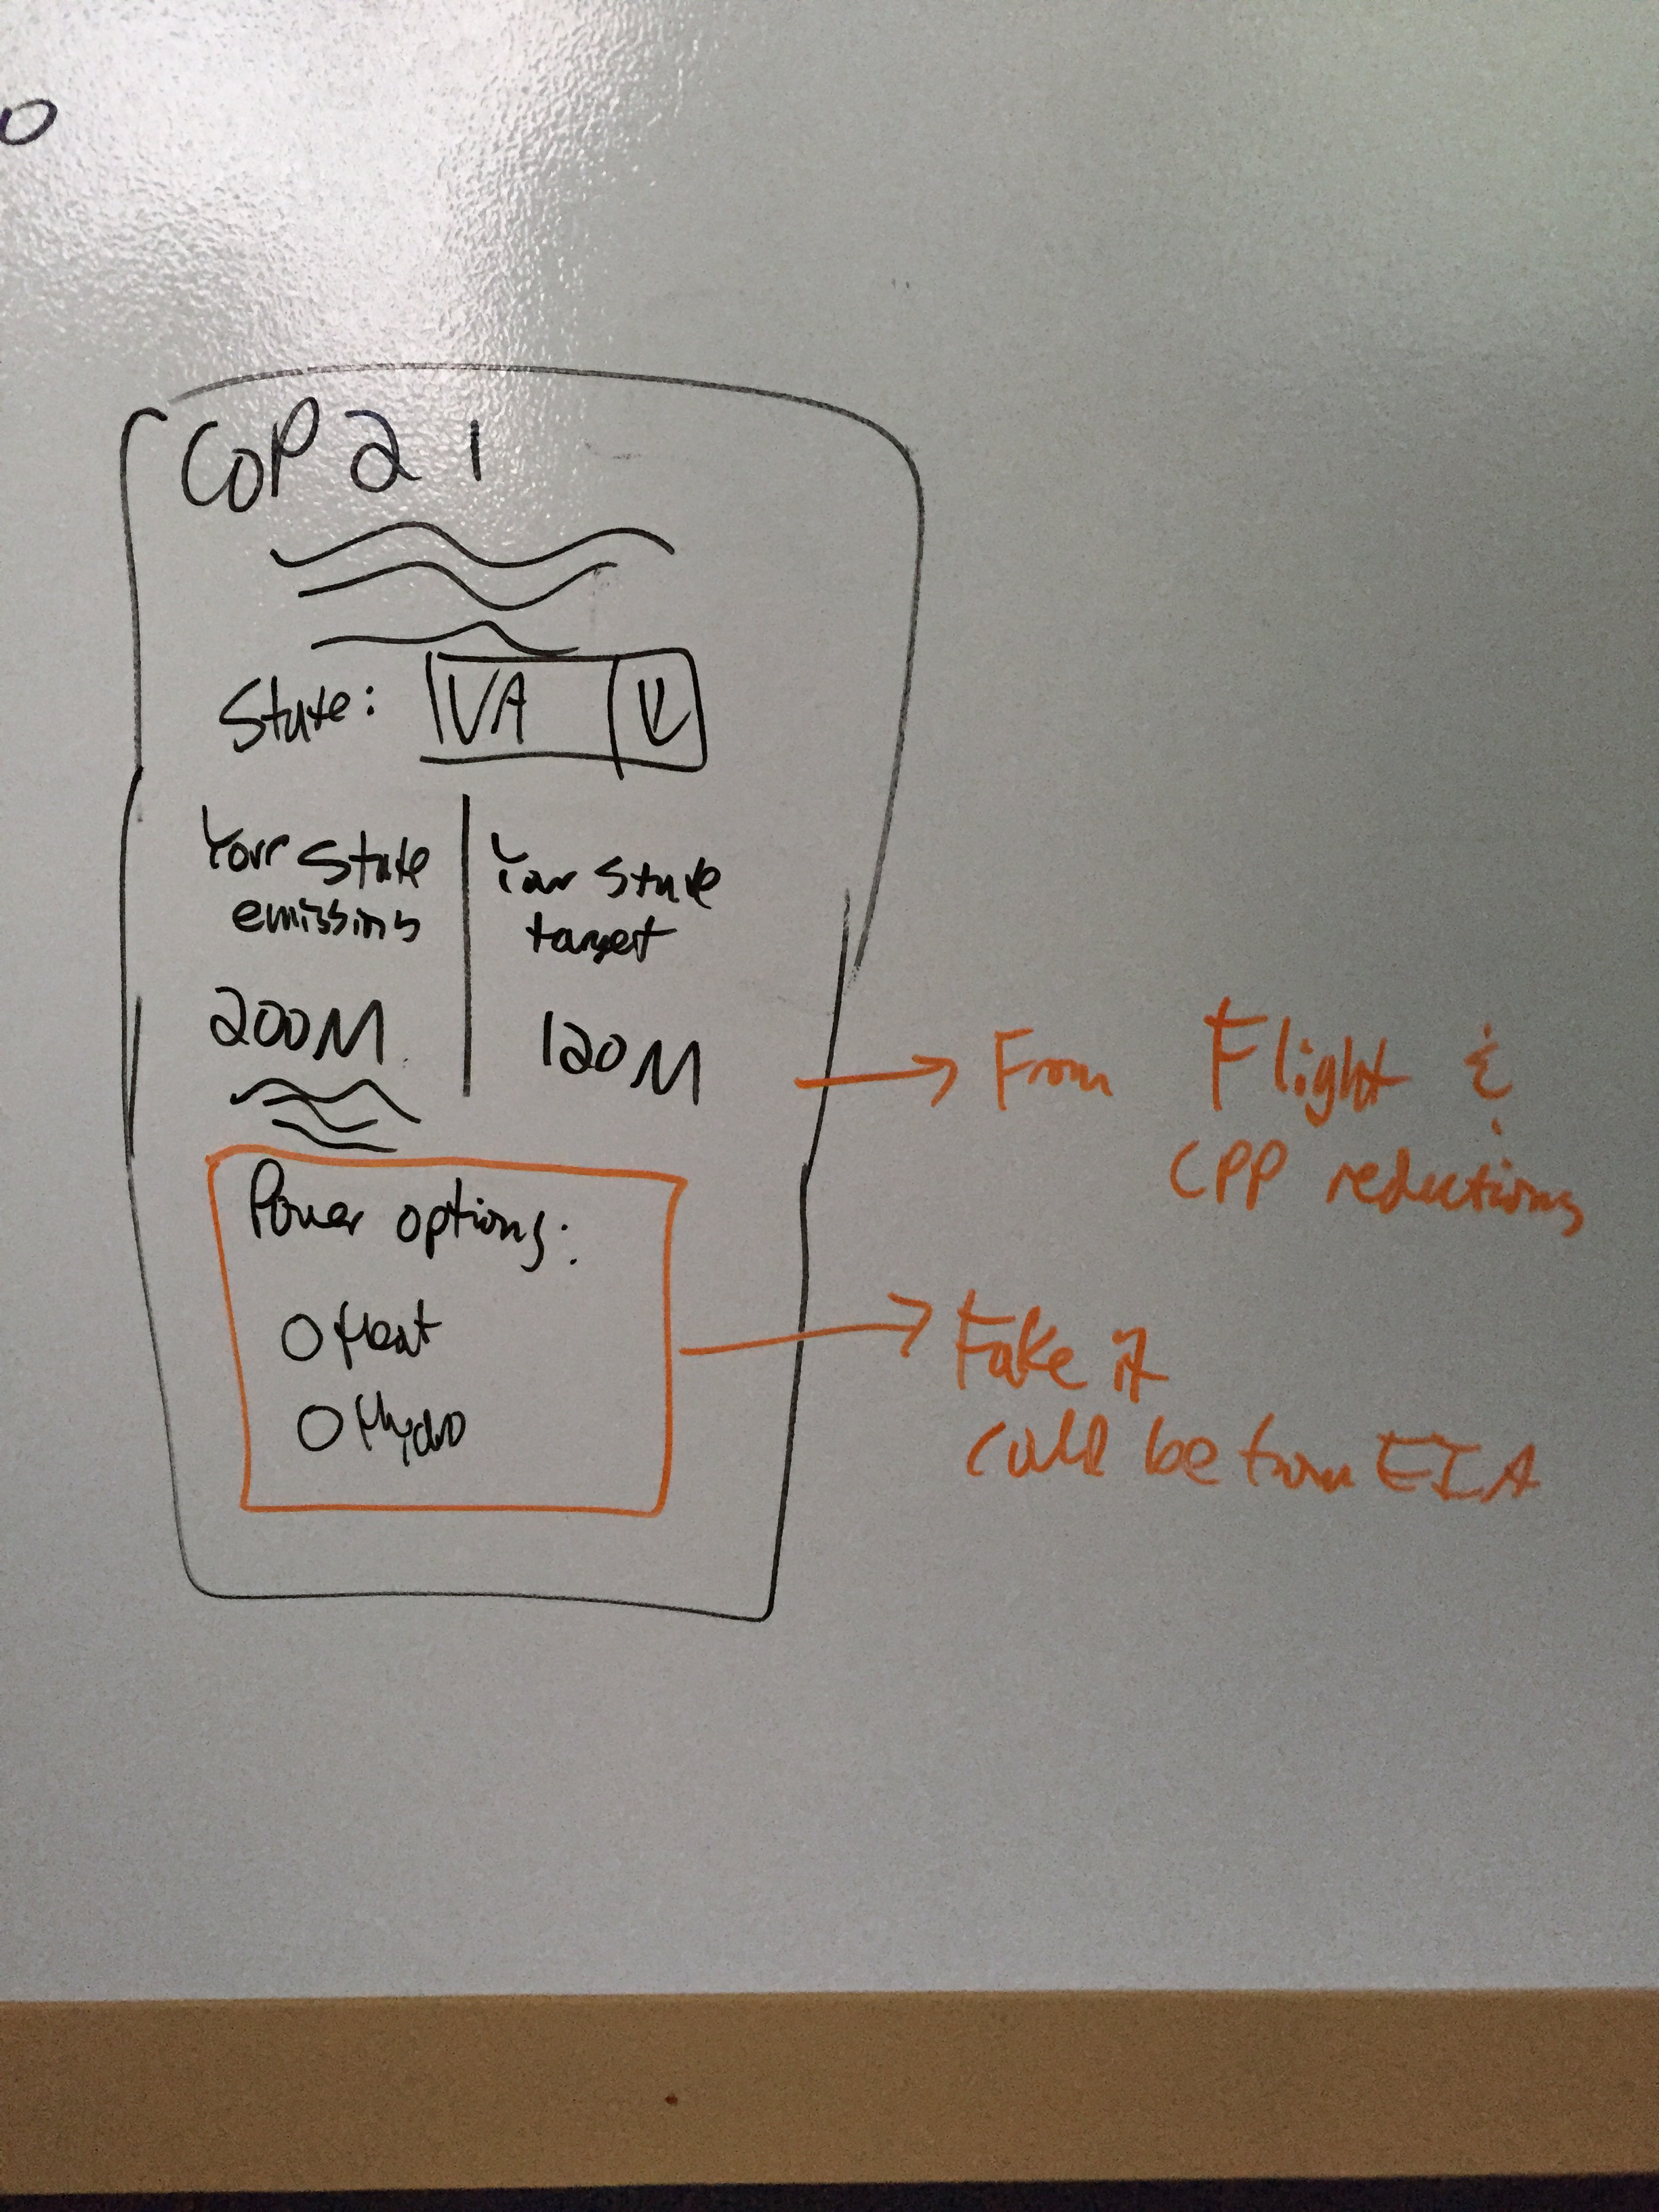 COP 21
State: VA
Your state emissions
Your state target
200M
120M
From Flight &
CPP reductions
Power options:
Heat
Hydro
Fake it
could be from EIA